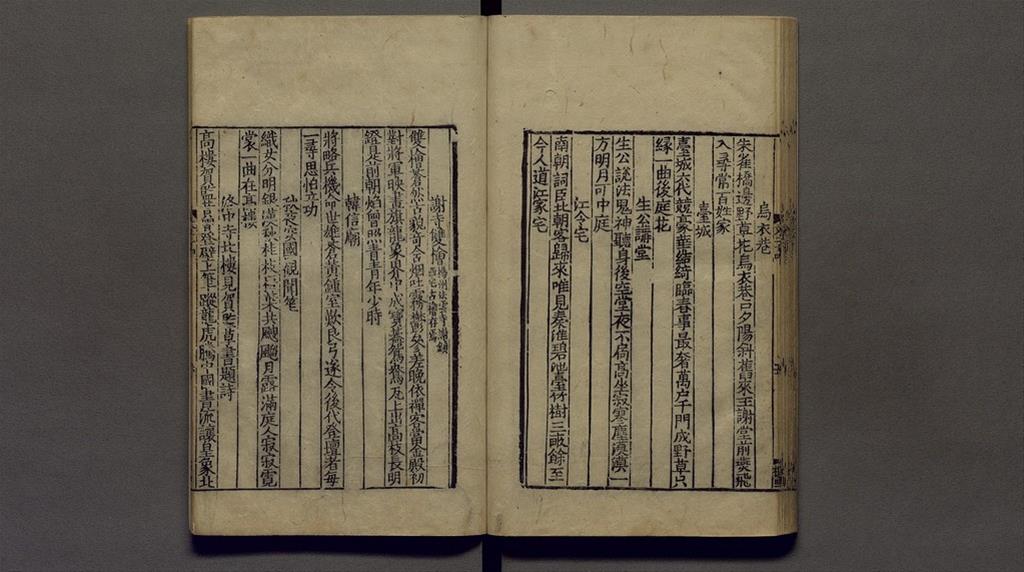 烏衣巷
朱雀橋邊野草花烏衣巷口夕陽斜舊來王謝堂前燕飛
入尋常百姓家
臺城
臺城六代競豪華結綺臨春事最奢萬户千門成野草只
縁一曲後庭花
生公講堂
生公說法鬼神聽身後空堂夜不扃高坐寂寥塵漠漠一
方明月可中庭
江令宅
南朝詞臣北朝客歸來唯見秦淮碧池臺竹樹三畝餘至
今人道江家宅
謝寺雙檜
揚州法雲寺謝鎮
西宅古檜存焉
雙檜蒼然古貌奇含烟吐霧鬱參差晚依禪客當金殿初
對將軍映畫旗龍象界中成寶蓋鴛鴦瓦上出高枝長明
燈是前朝焰曾照青青年少時
韓信廟
將略兵機命世雄蒼黃鍾室歎良弓遂令後代登壇者每
一尋思怕立功
秋夜安國觀聞笙
織女分明銀漢秋桂枝梧葉共颼飀月露滿庭人寂寂霓
裳一曲在高樓
洛中寺北樓見賀監草書題詩
高樓賀監昔曾登壁上筆蹤龍虎騰中國書流讓皇象北